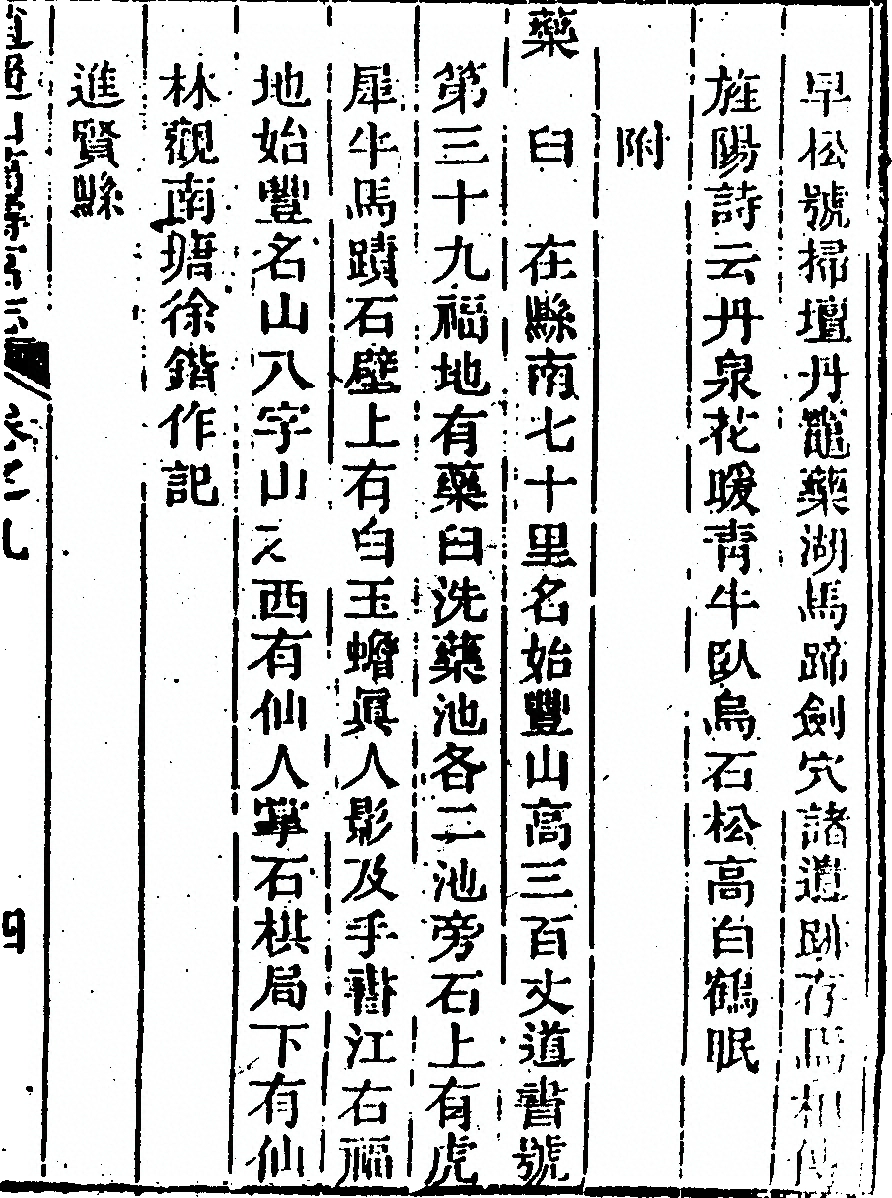 早松號掃壇丹竈藥湖馬蹄劍穴諸遺跡存焉相傳
旌陽詩云丹泉花暖青牛臥烏石松高白鶴眠
附
藥臼　在縣南七十里名始豐山高三百丈道書號
第三十九福地有藥臼洗藥池各二池旁石上有虎
犀牛馬蹟石壁上有白玉蟾眞人影及手書江右福
地始豐名山八字山之西有仙人掌石棋局下有仙
林觀南塘徐鍇作記
進賢縣
逍遙山萬壽宮志　卷之九　四